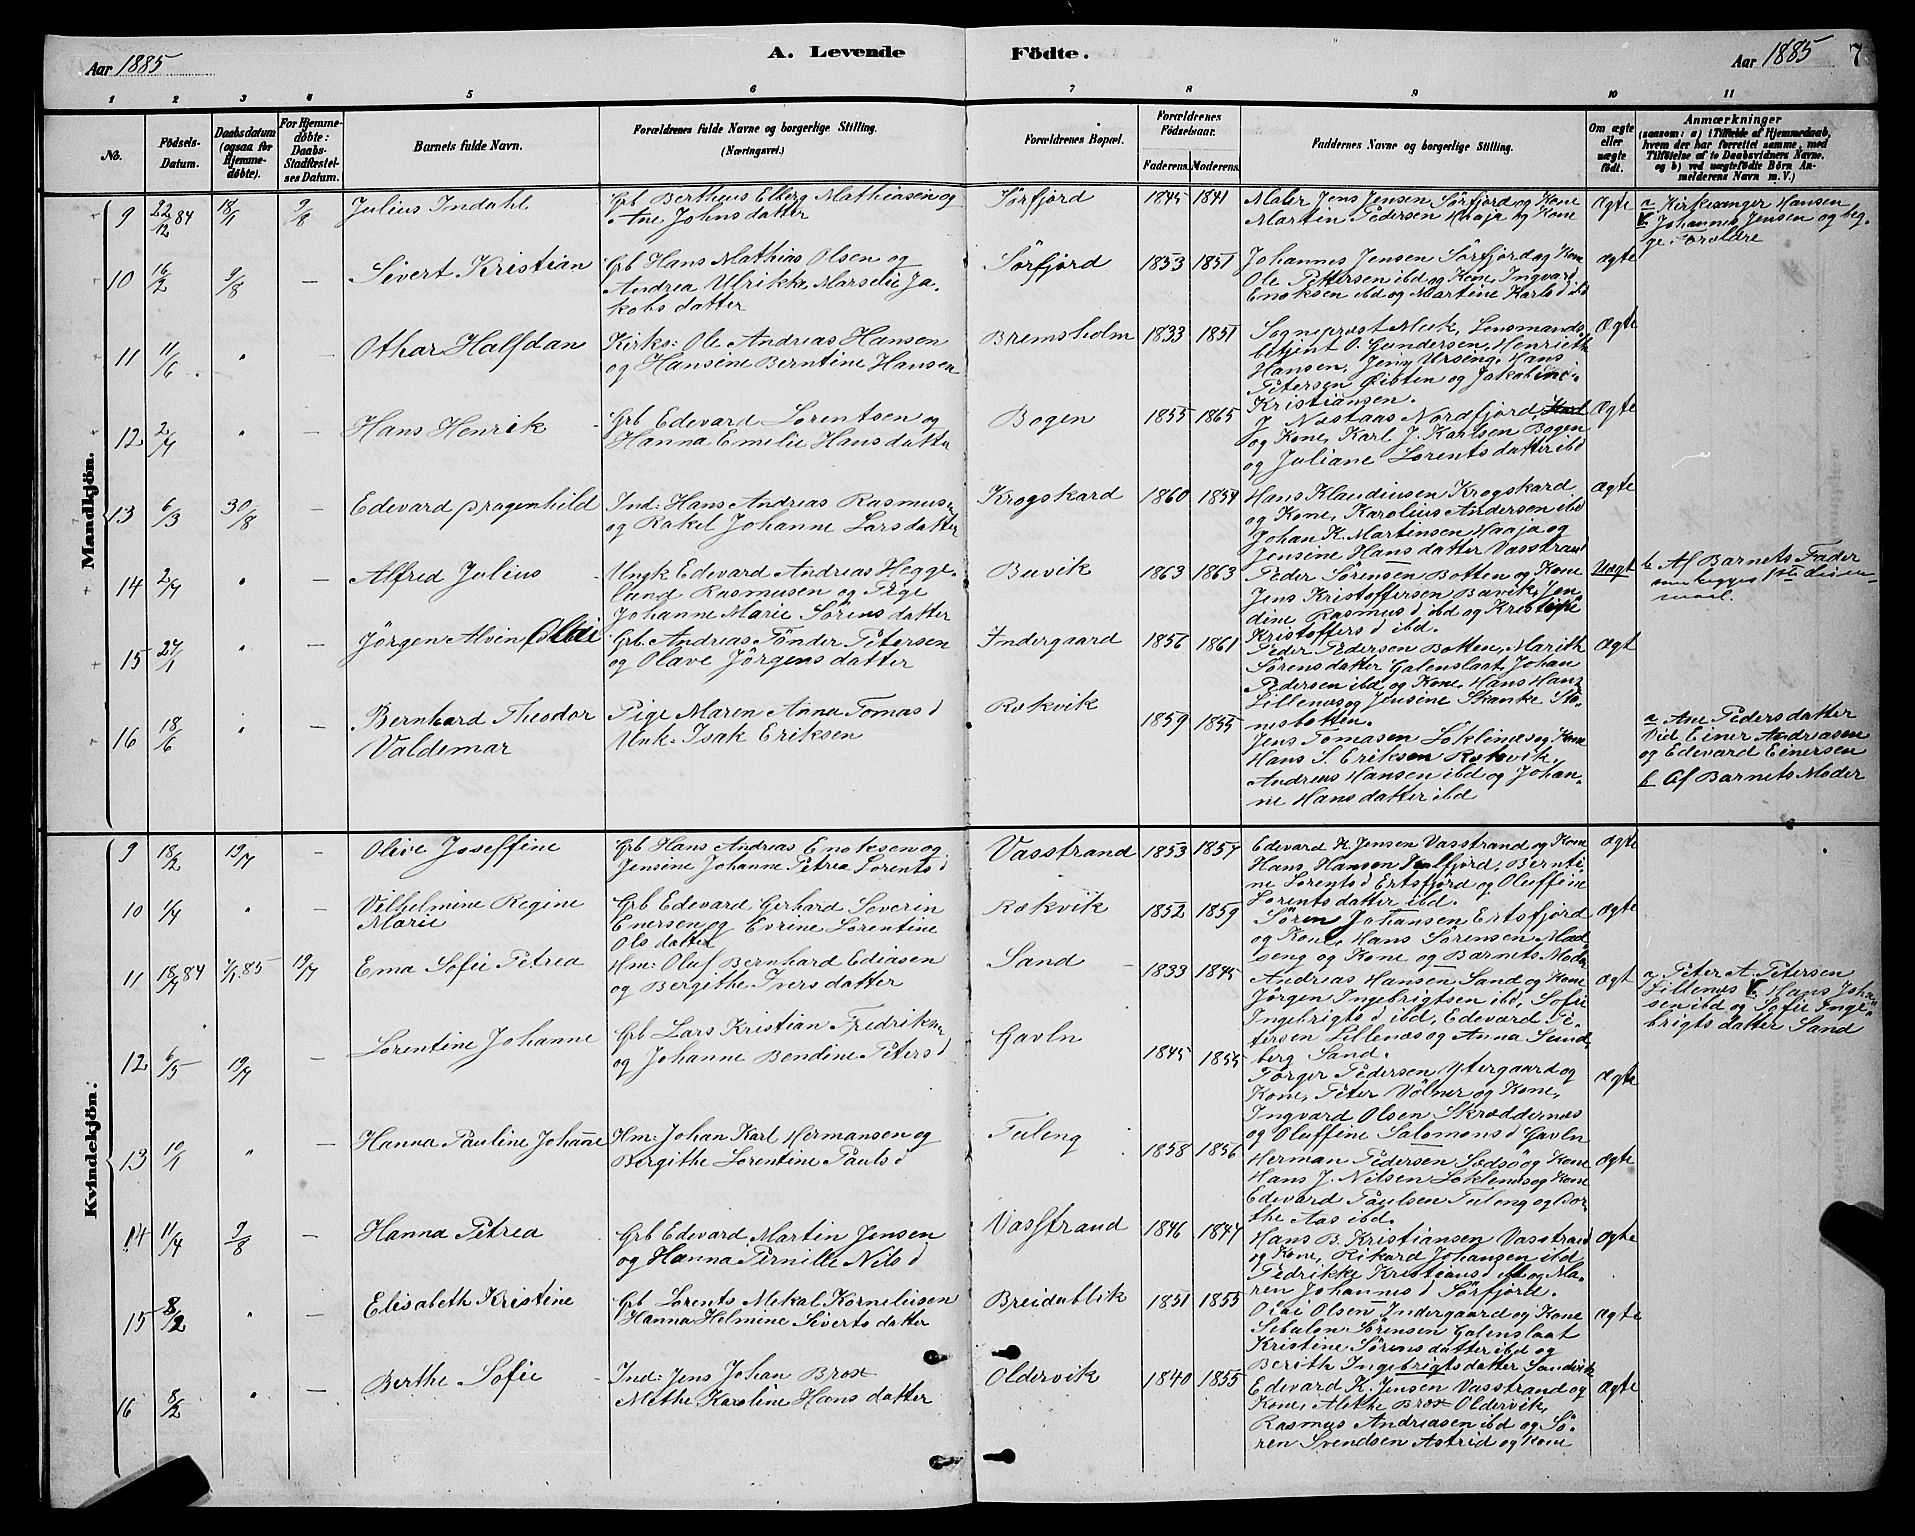 Aar 1885
A. Levende
Födte.
Aar 1885
7
1 2 3 4 5 6 7 8 9 10 11
No.
Födsels-Datum.
Daabsdatum (ogsaa for Hjemmedöbte).
For Hjemmedöbte: Daabs-Stadfæstelses Datum.
Barnets fulde Navn.
Forældrenes fulde Navne og borgerlige Stilling.
(Næringsvei.)
Forældrenes Bopæl.
Forældrenes Födselsaar.
Faderens. Moderens.
Faddernes Navne og borgerlige Stilling.
Om ægte eller uægte födt.
Anmærkninger
(saasom: a) i Tilfælde af Hjemmedaab, hvem der har forrettet samme, med Tilföielse af to Daabsvidners Navne, og b) ved uægtefödte Börn Anmelderens Navn m. V.)
Mandkjön.
9 22/12 84 18/1 9/8 Julius Indahl
Grb Bertheus Elberg Mathiasen og
Ane Johnsdatter
Sörfjord 1845 1841
Maler Jens Jensen Sörfjord og Kone
Martin Pedersen Haaja og Kone
Ægte
a Kirkesanger Hansen
V. Johannes Jensen og beg-
ge Forældre
10 16/2 9/8 — Sivert Kristian
Grb Hans Mathias Olsen og
Andrea Ulrikke Marselie Ja-
kobsdatter
Sörfjord 1853 1851
Johannes Jensen Sörfjord og Kone
Ole Pettersen ibd og Kone, Ingvard
Enoksen ibd og Martine Karlsd ibd
ægte
11 11/6 " — Othar Halfdan
Kirks: Ole Andreas Hansen
og Hansine Berntine Hansen
Bremsholm 1833 1851
Sognepræst Meek, Lensmands-
betjent O. Gundersen, Henriethe
Hansen, Jeny Ursing, Hans
Petersen Öibten og Jakobine
Kristiansen.
Ægte
12 2/4 " — Hans Henrik
Grb Edevard Lorentsen og
Hanna Emilie Hansdatter
Bogen 1855 1865
J. Næstaas Nordfjord,
og Kone, Karl J. Karlsen Bogen
og Juliane Lorentsdatter ibd
Ægte
13 6/3 30/8 — Edevard Dragenhild
Ind: Hans Andreas Rasmusen
og Rakel Johanne Larsdatter
Krogskard 1860 1854
Hans Klaudiusen Krogskard
og Kone, Karolius Andersen ibd
Johan K. Martinsen Haaja og
Jensine Hansdatter Vasstrand
Ægte
14 2/4 " — Alfred Julius
Ungk Edevard Andreas Hegge-
lund Rasmusen og Pige
Johanne Marie Sörensdatter
Buvik 1863 1863
Peder Sörensen Botten og Kone
Jens Kristoffersen Buvik, Jen-
dine Rasmusd ibd og Kristine
Kristoffersd ibd.
Uægt
b Af Barnets Fader
15 27/1 " — Jörgen Alvin Olai
Grb. Andreas Tönder Petersen
og Olave Jörgensdatter
Indergaard 1856 1861
Peder Pedersen Botten, Marith
Sörensdatter Galenslaat, Johan
Pedersen ibd og Kone, Hans Hans
Lillenes og Jensine Skanke Stö-
nesbotten.
Ægt
16 18/6 " — Bernhard Theodor
Valdemar
Pige Maren Anna Tomasd
Unk: Isak Eriksen
Rakvik 1859 1855
Jens Tomasen Löklines og Kone
Hans S. Eriksen Rakvik,
Andreas Hansen ibd og Johan-
ne Hansdatter ibd
a Ane Pedersdatter
Vid Einer Andreasen
og Edevard Einersen
b Af Barnets Moder
Kvindekjön.
9 18/2 19/7 — Olive Joseffine
Grb Hans Andreas Enoksen og
Jensine Johanne Petrea Lorentsd
Vasstrand 1853 1857
Edevard K. Jensen Vasstrand og Kone
Hans Hansen Kalfjord, Bernti-
ne Lorentsd Ertsfjord og Oluffine
Lorentsdatter ibd.
ægte
10 1/4 " — Vilhelmine Regine
Marie
Grb Edevard Gerhard Severin
Enersen og Evrine Lorentine
Olsdatter
Rækvik 1852 1859
Sören Johansen Ertsfjord
og Kone, Hans Sörensen Mad-
seng og Kone og Barnets Moder
Ægte
11 18/7 84 7/1.85 19/7 Ema Sofie Petrea
Hm: Oluf Bernhard Ediasen
og Bergithe Iversdatter
Sand 1833 1845
Andreas Hansen Sand og Kone
Jörgen Ingebrigtsen ibd, Sofie
Ingebrigtsd ibd, Edevard Pe-
tersen Lillenes og Anna Sund-
berg Sand.
Ægt
a Peter A. Petersen
Lillenes V. Hans Joha-
sen ibd og Sofie Inge-
brigtsdatter Sand
12 6/5 19/7 — Lorentine Johanne
Grb Lars Kristian Fredriksen
og Johanne Bendine Petersd
Gavln 1845 1855
Torger Pedersen Ytergaard og
Kone, Peter Völner og Kone,
Ingvard Olsen Skræddernes
og Oluffine Salomonsd Gavln
Ægte
13 10/1 " — Hanna Pauline Johanne
Hm: Johan Karl Hermansen og
Bergithe Lorentine Paulsd
Tuleng 1858 1856
Herman Pedersen Sodsö og Kone
Hans J. Nilsen Löklenes og Kone
Edevard Paulsen Tuleng og Dor-
the Aas ibd.
Ægte
14 11/4 9/8 — Hanna Petrea
Grb Edevard Martin Jensen
og Hanna Pernille Nilsd
Vasstrand 1846 1847
Hans B. Kristiansen Vasstrand
og Kone, Rikard Johansen ibd
Pedrikke Kristiansd ibd og Ma-
ren Johannesd Sörfjord.
Ægte
15 8/2 " — Elisabeth Kristine
Grb Lorents Mekal Korneliusen
Hanna Helmine Sivertsdatter
Breidablik 1851 1855
Olai Olsen Indergaard og Kone
Sebulon Sörensen Galenslaat
Kristine Sörensdatter ibd og
Berith Ingebrigtsdatter Sandvik
Ægte
16 8/2 " — Berthe Sofie
Ind: Jens Johan Brox
Methe Karoline Hansdatter
Oldervik 1840 1855
Edevard K. Jensen Vasstrand og
Kone, Methe Brox Oldervik,
Rasmus Andreasen ibd og Sö-
ren Svendsen Astrid og Kone
Ægte